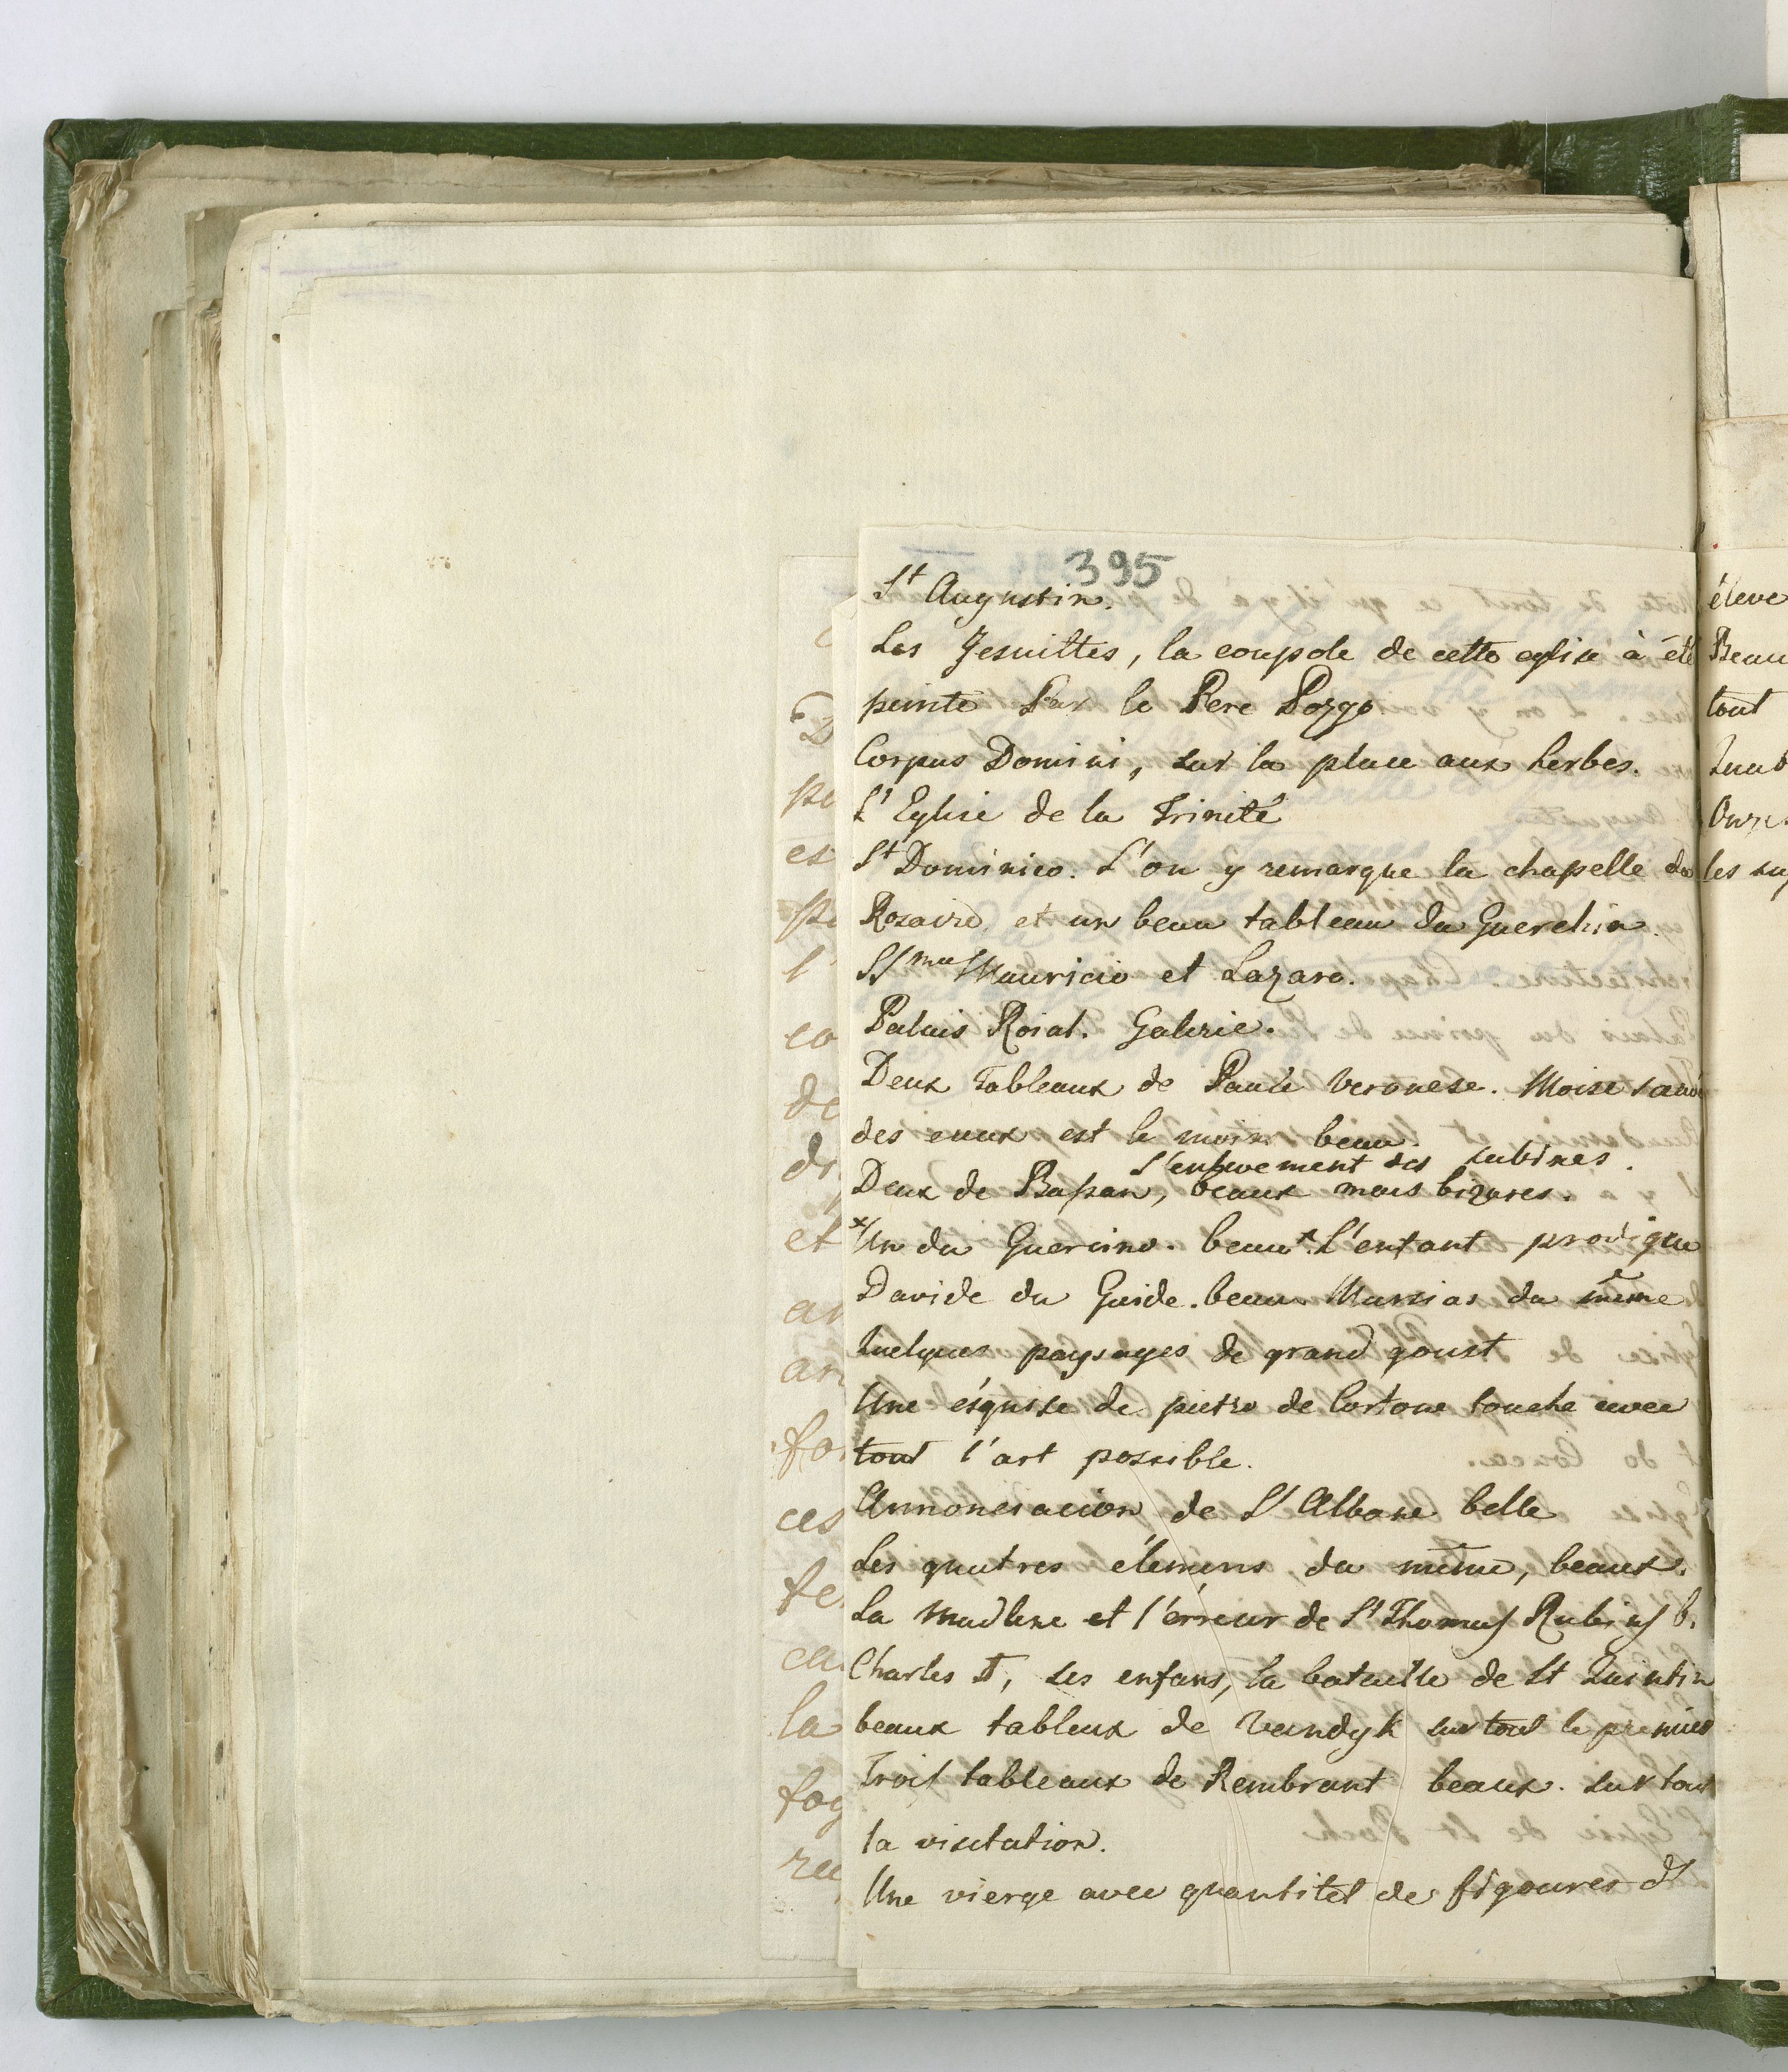 395
St Augustin.
Les Jesuittes, la coupole de cette eglise à été
peinte Par le Pere Pozzo
Corpus Domini, sur la place aux herbes.
L'Eglise de la Trinité
St Dominico. L'on y remarque la chapelle du
Rosaire et un beau tableau du Guerchin.
Mauricio et Lazaro.
Palais Roial. Galerie.
Deux Tableaux de Paule Veronese. Moise sauvé
des eaux est le moins beau.
L'enlevement des sabines.
Deux de Bassan, beaux mais bizares.
Un du Guercino. beau L'enfant prodigue
Davide du Guide. beau Marsias du même
Quelques paysages de grand goust
Une ésquise de pietro de Cortone touche avec
tout l'art possible.
Annonciacion de L'Albane belle
Les quatres élemens du même, beaux.
La Madlene et l'érreur de St Thomas Rubins b.
Charles I, ses enfans, la bataille de St Quintin
beaux tableux de Vandyk sur tout le premier
Trois tableaux de Rembrant beaux. sur tout
la visitation.
Une vierge avec quantitet de figoures d
éleve
Beau
tout
les
es
la
et
ces